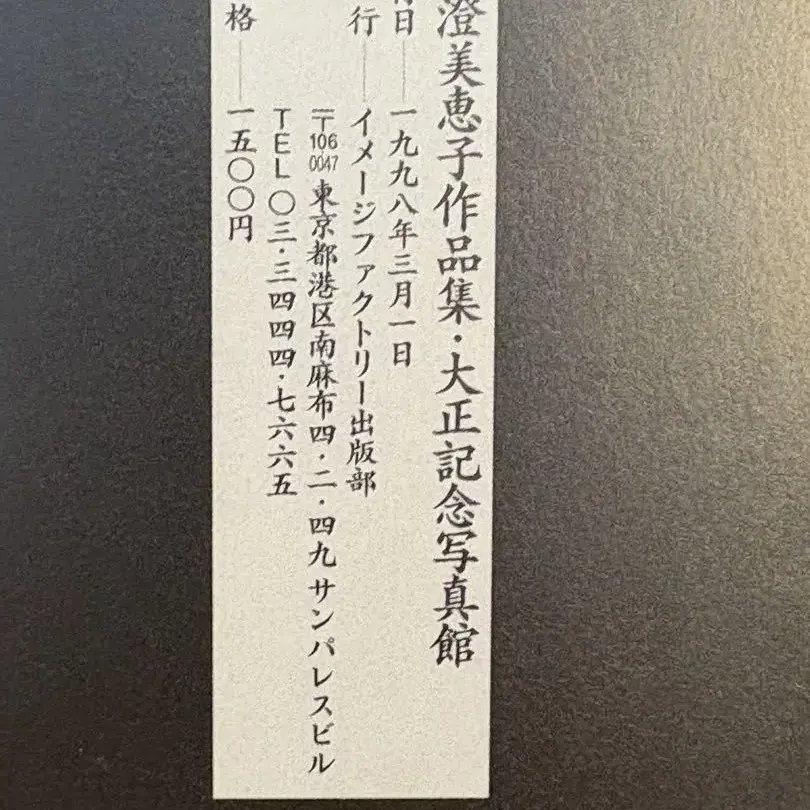 澄美恵子作品集・大正記念写真館
日——一九九八年三月一日
行——イメージファクトリー出版部
〒106-0047 東京都港区南麻布四・二・四九サンパレスビル
TEL〇三・三四四四・七六六五
格——一五〇〇円